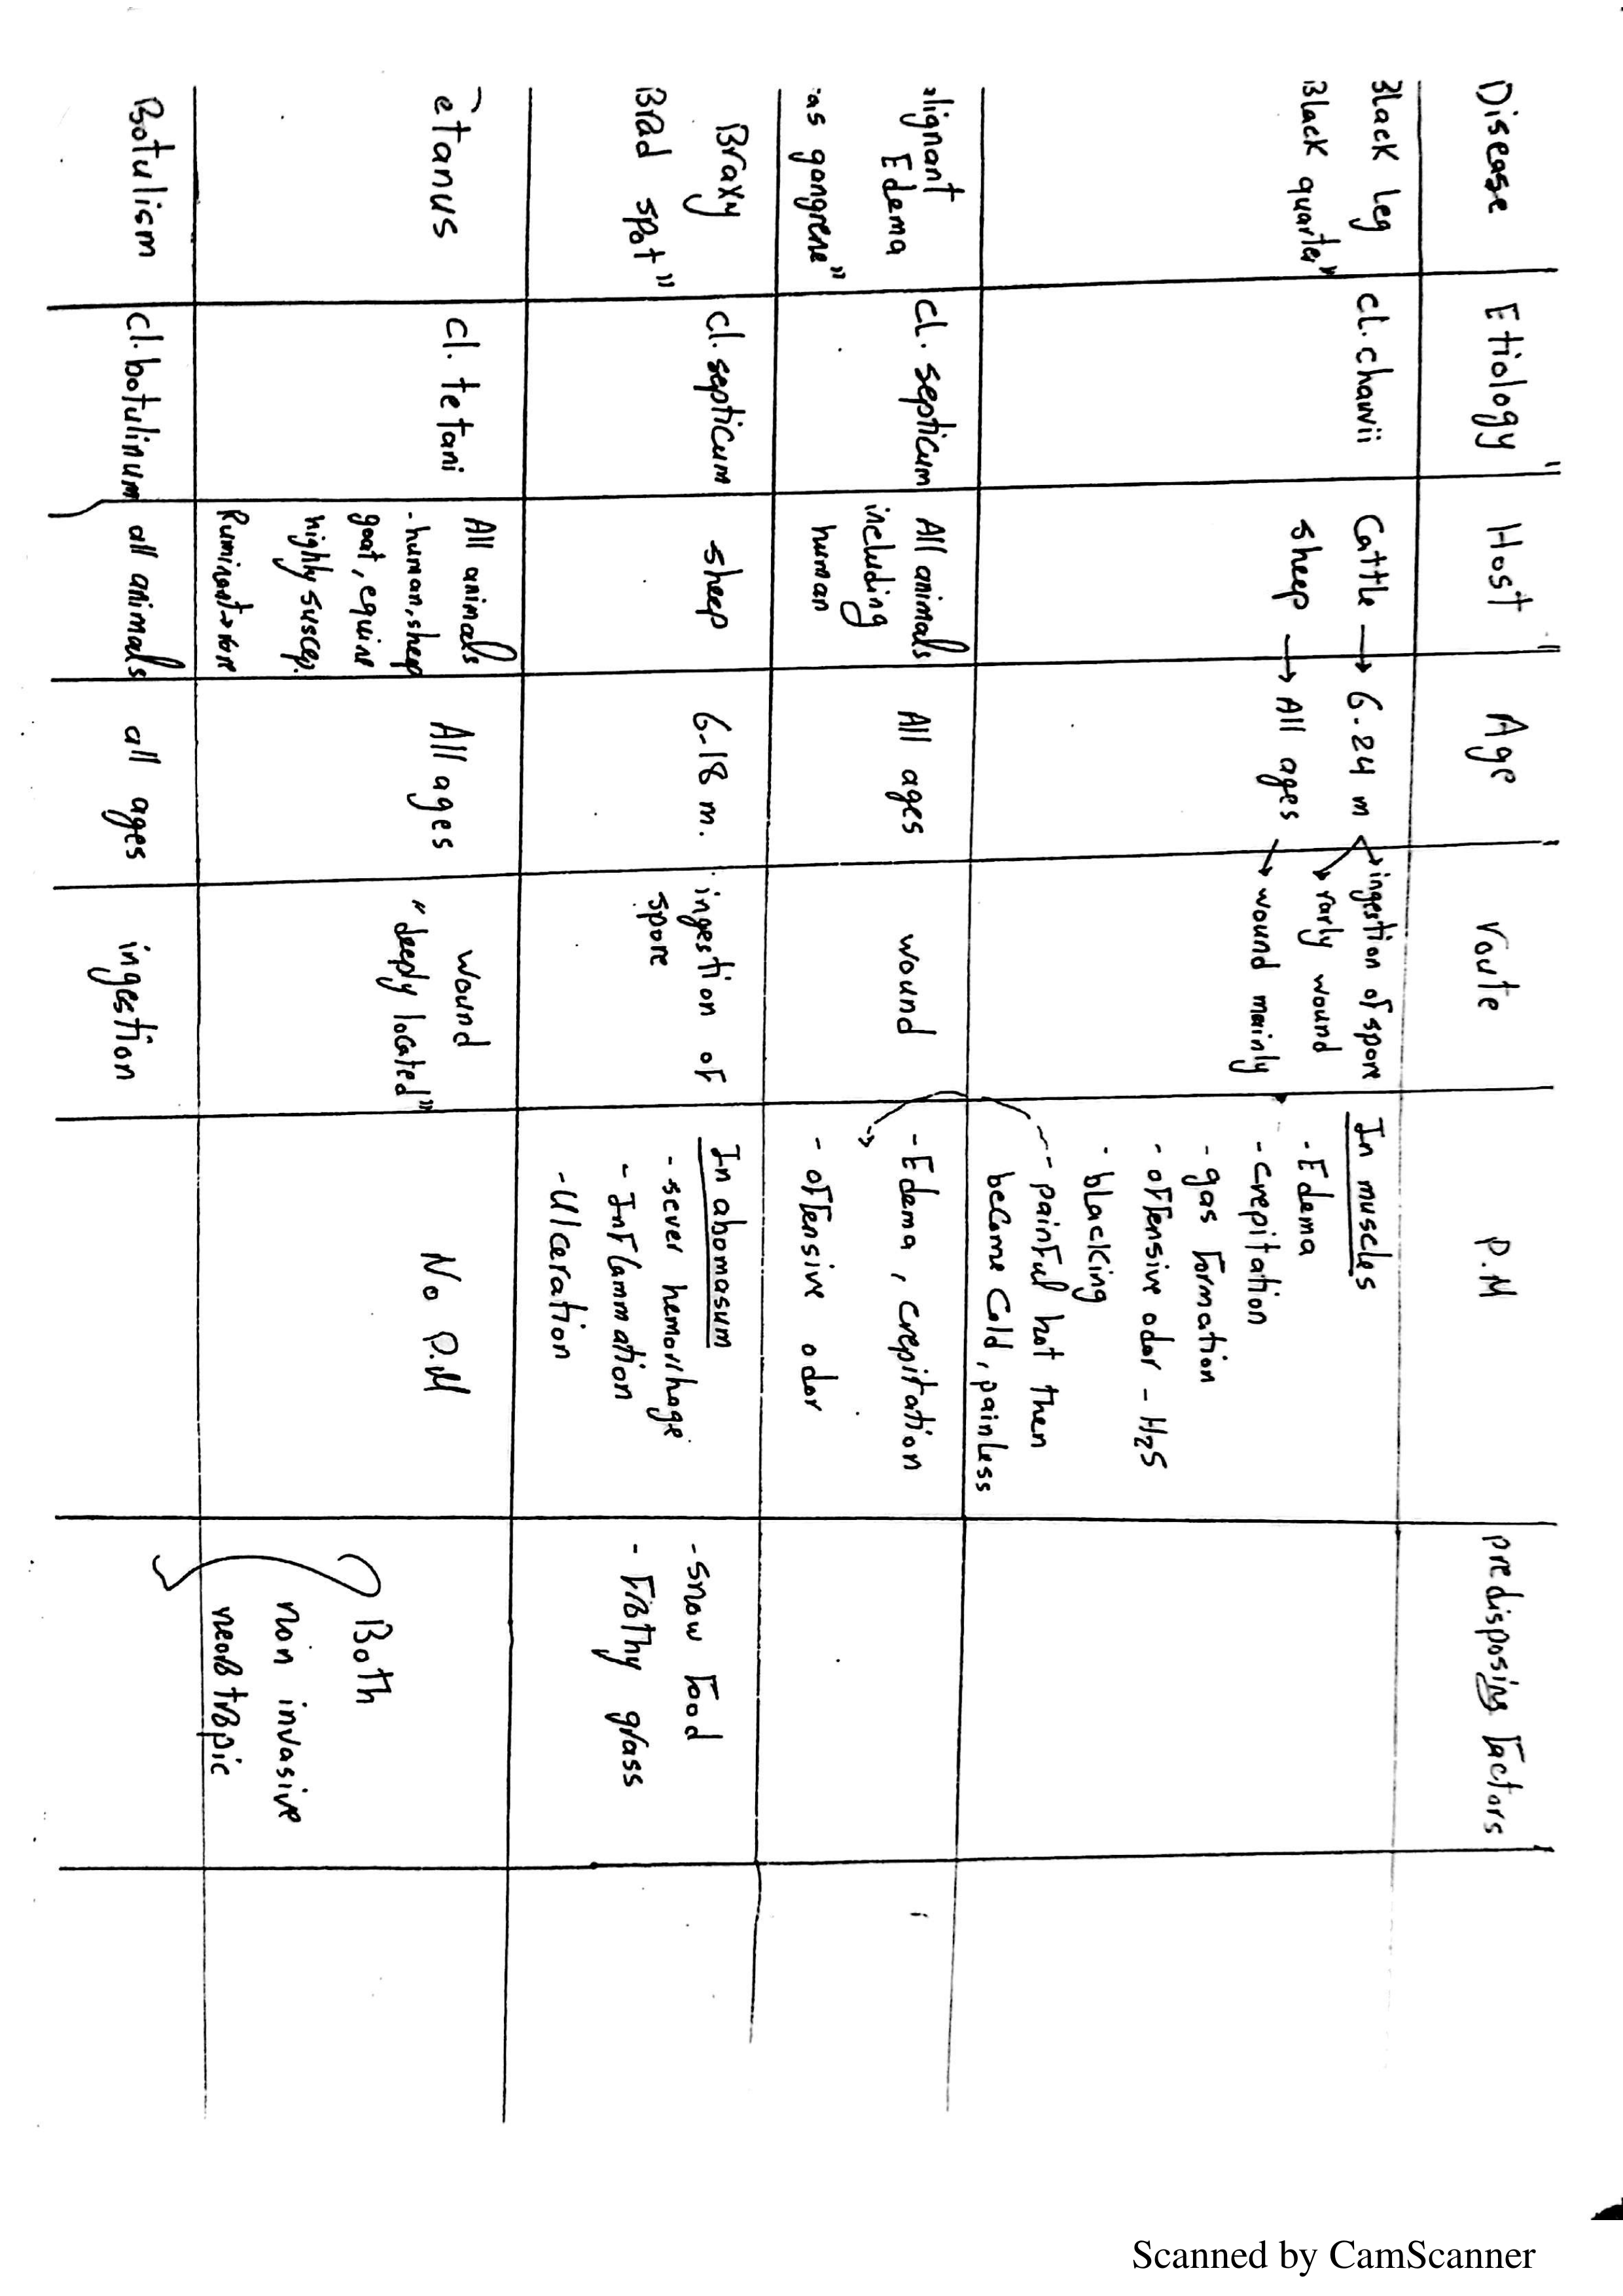 Disease
Etiology
Host
Age
route
P.M
predisposing factors
Black leg
Black quarter"
cl. chauvii
Cattle → 6-24 m → ingestion of spore
→ rarly wound
sheep → All ages → wound mainly
In muscles
- Edema
- crepitation
- gas formation
- offensive odor - H2S
- blacking
- painful hot then
become cold, painless
lignant
Edema
as gangrene"
cl. septicum
All animals
including
human
All ages
wound
- Edema, crepitation
- offensive odor
Braxy
Brad spot"
cl. septicum
sheep
6-18 m.
ingestion of
spore
In abomasum
- sever hemorrhage
- Inflammation
- Ulceration
- snow food
- frothy grass
etanus
cl. tetani
All animals
- human, sheep
goat, equine
highly suscep.
Ruminant →
All ages
wound
"deeply located"
No P.M
Both
non invasive
Botulism
cl. botulinum
all animals
all ages
ingestion
Scanned by CamScanner